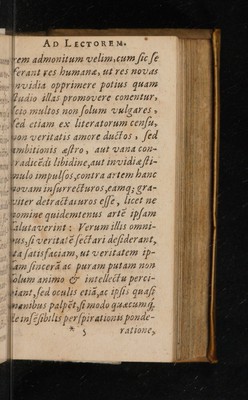 AD LECTOREM.
rem admonitum velim, cum sic se
ferant res humanæ, ut res novas
invidia opprimere potius quam
studio illas promovere conentur,
scio multos non solum vulgares,
sed etiam ex literatorum censu,
non veritatis amore ductos, sed
ambitionis æstro, aut vana con-
tradicēdi libidine, aut invidiæ sti-
mulo impulsos, contra artem hanc
novam insurrecturos, eamq; gra-
viter detractaturos esse, licet ne
nomine quidem tenus artē ipsam
salutaverint: Verum illis omni-
bus, si veritatē sectari desiderant,
ita satisfaciam, ut veritatem ip-
sam sincerā ac puram putam non
solum animo & intellectu perci-
piant, sed oculis etiā, ac ipsis quasi
manibus palpēt, si modo quæcumq,
de insēsibilis perspirationis ponde-
* 5 ratione,